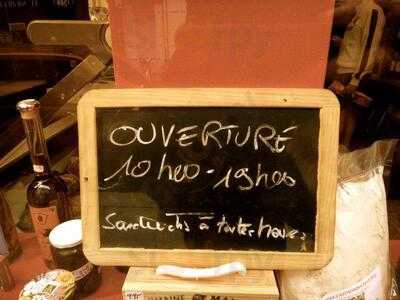 OUVERTURE
10h00-19h00
Sandwichs à toute heure